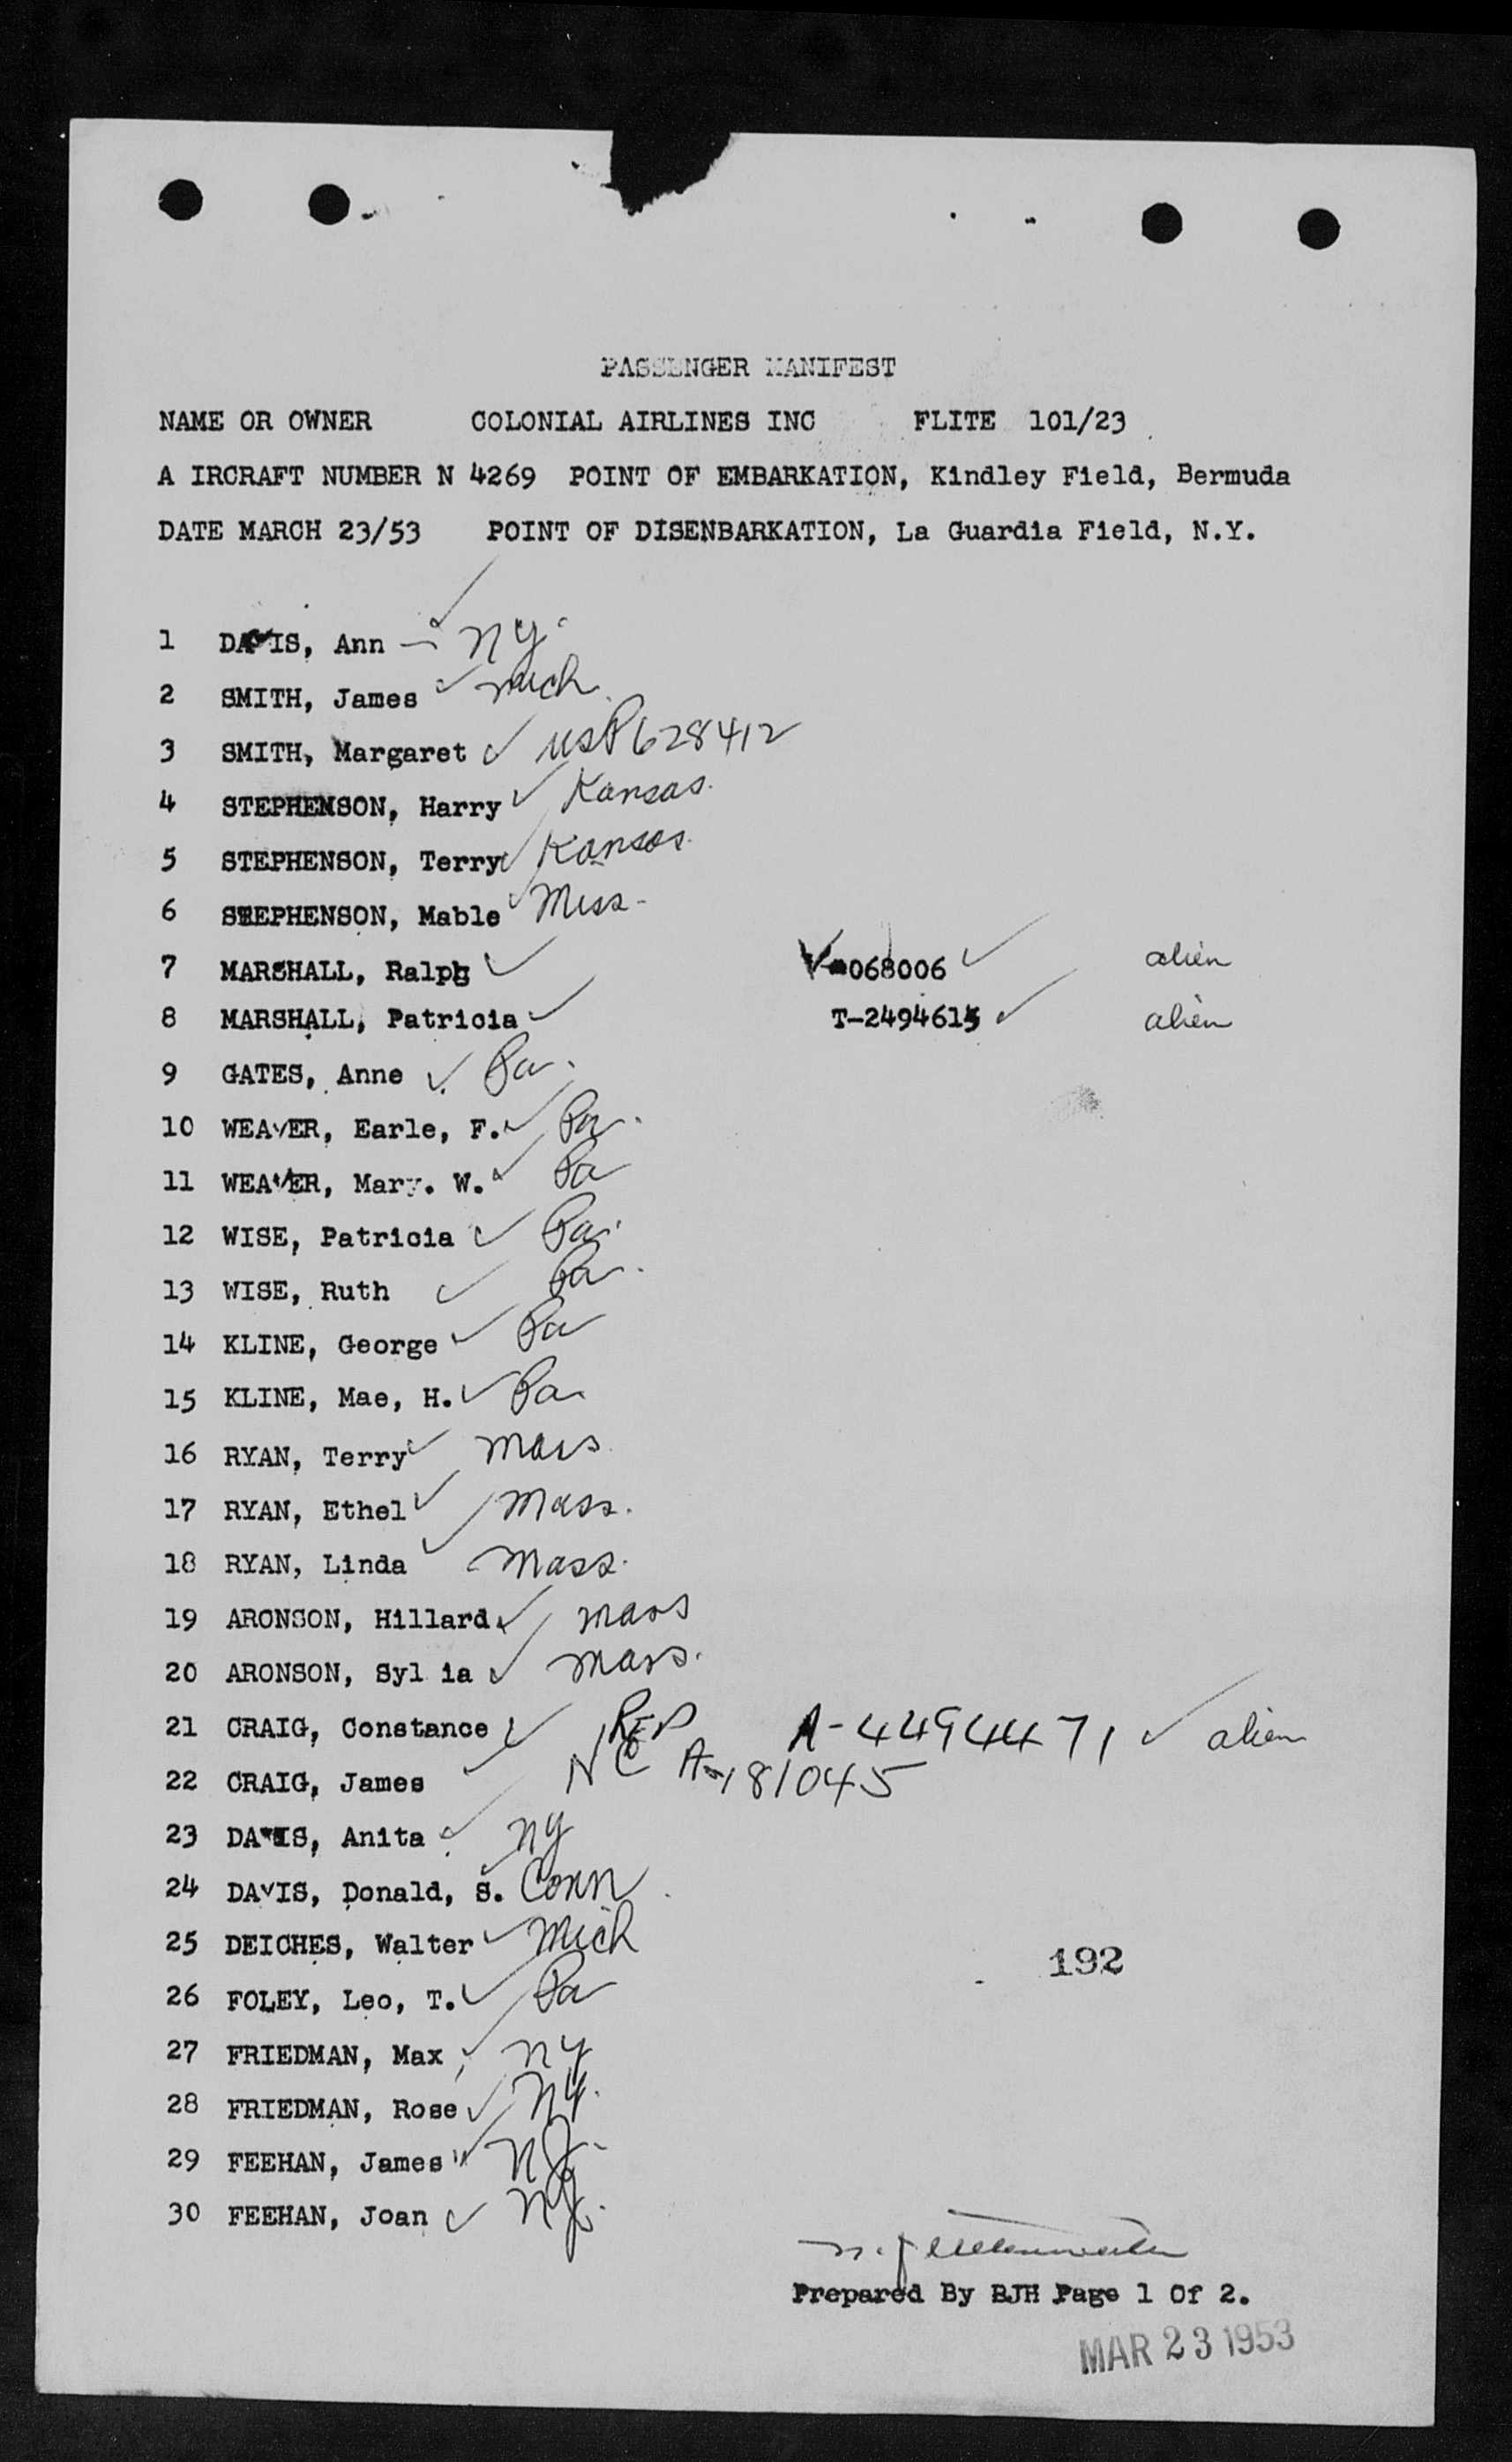 PASSENGER MANIFEST
NAME OR OWNER COLONIAL AIRLINES INC FLITE 101/23
A IRCRAFT NUMBER N 4269 POINT OF EMBARKATION, Kindley Field, Bermuda
DATE MARCH 23/53 POINT OF DISENBARKATION, La Guardia Field, N.Y.
1 DAVIS, Ann ny.
2 SMITH, James Mich.
3 SMITH, Margaret USP 628412
4 STEPHENSON, Harry Kansas.
5 STEPHENSON, Terry Kansas.
6 STEPHENSON, Mable Miss.
7 MARSHALL, Ralph V-068006 alien
8 MARSHALL, Patricia T-2494615 alien
9 GATES, Anne Pa.
10 WEAVER, Earle, F. Pa.
11 WEAVER, Mary. W. Pa
12 WISE, Patricia Pa.
13 WISE, Ruth Pa.
14 KLINE, George Pa
15 KLINE, Mae, H. Pa.
16 RYAN, Terry Mass.
17 RYAN, Ethel Mass.
18 RYAN, Linda Mass.
19 ARONSON, Hillard Mass
20 ARONSON, Syl ia Mass.
21 CRAIG, Constance REP A-4494471 alien
22 CRAIG, James NC A-181045
23 DAVIS, Anita ny
24 DAVIS, Donald, S. Conn
25 DEICHES, Walter Mich
26 FOLEY, Leo, T. Pa
27 FRIEDMAN, Max ny
28 FRIEDMAN, Rose NY.
29 FEEHAN, James NJ.
30 FEEHAN, Joan NJ.
192
Prepared By BJH Page 1 Of 2.
MAR 23 1953